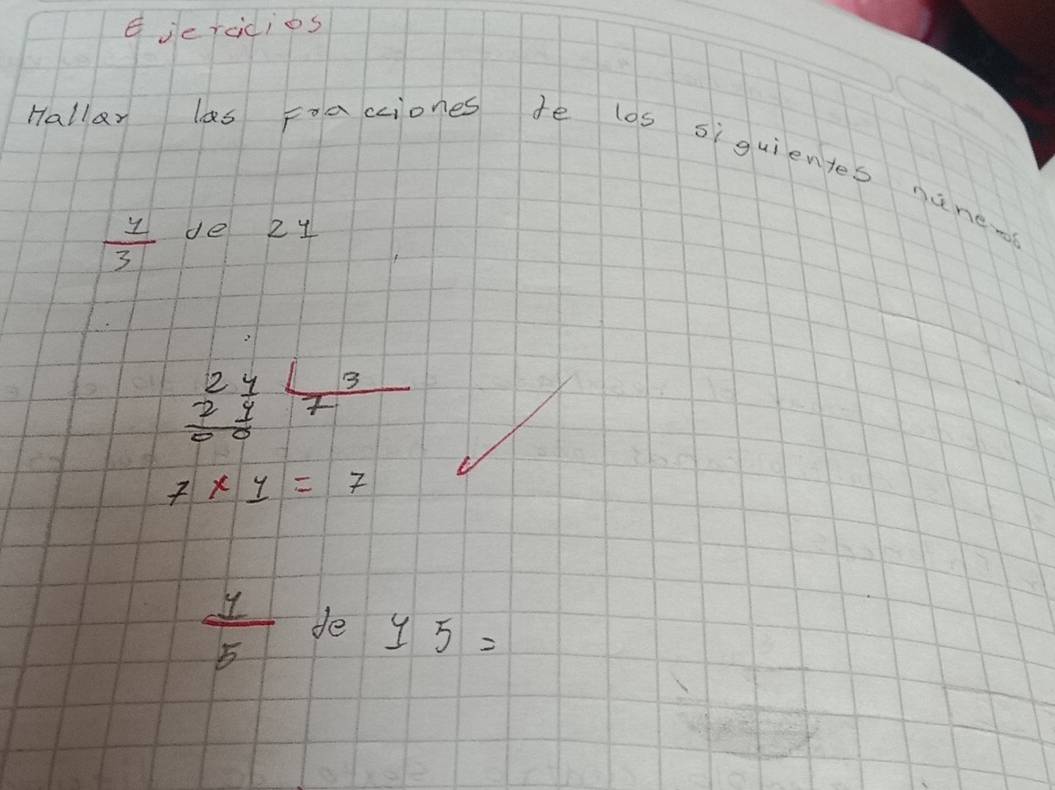 Ejercicios
Hallar las fracciones de los siguientes números
1/3 de 21
21 | 3
21 7
00
7 x 1 = 7
1/5 de 15 =